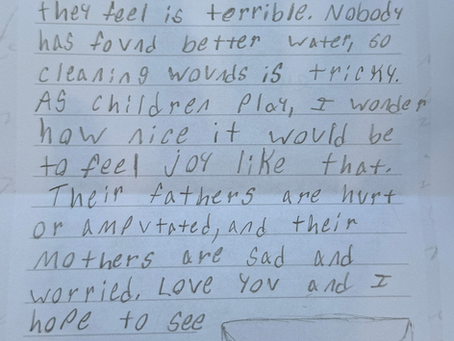 they feel is terrible. Nobody
has found better water, so
cleaning wounds is tricky.
AS children play, I wonder
how nice it would be
to feel joy like that.
Their fathers are hurt
or amputated, and their
mothers are sad and
worried. Love you and I
hope to see